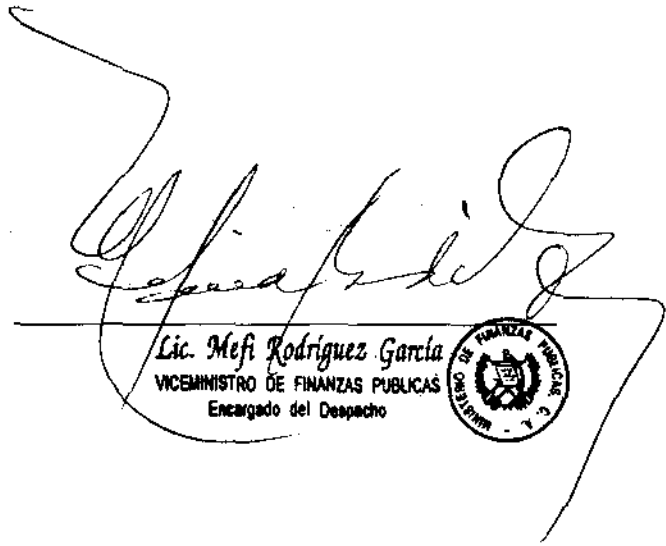 Lic. Mefi Rodríguez García
VICEMINISTRO DE FINANZAS PUBLICAS
Encargado del Despacho
MINISTERIO DE FINANZAS PUBLICAS C. A.